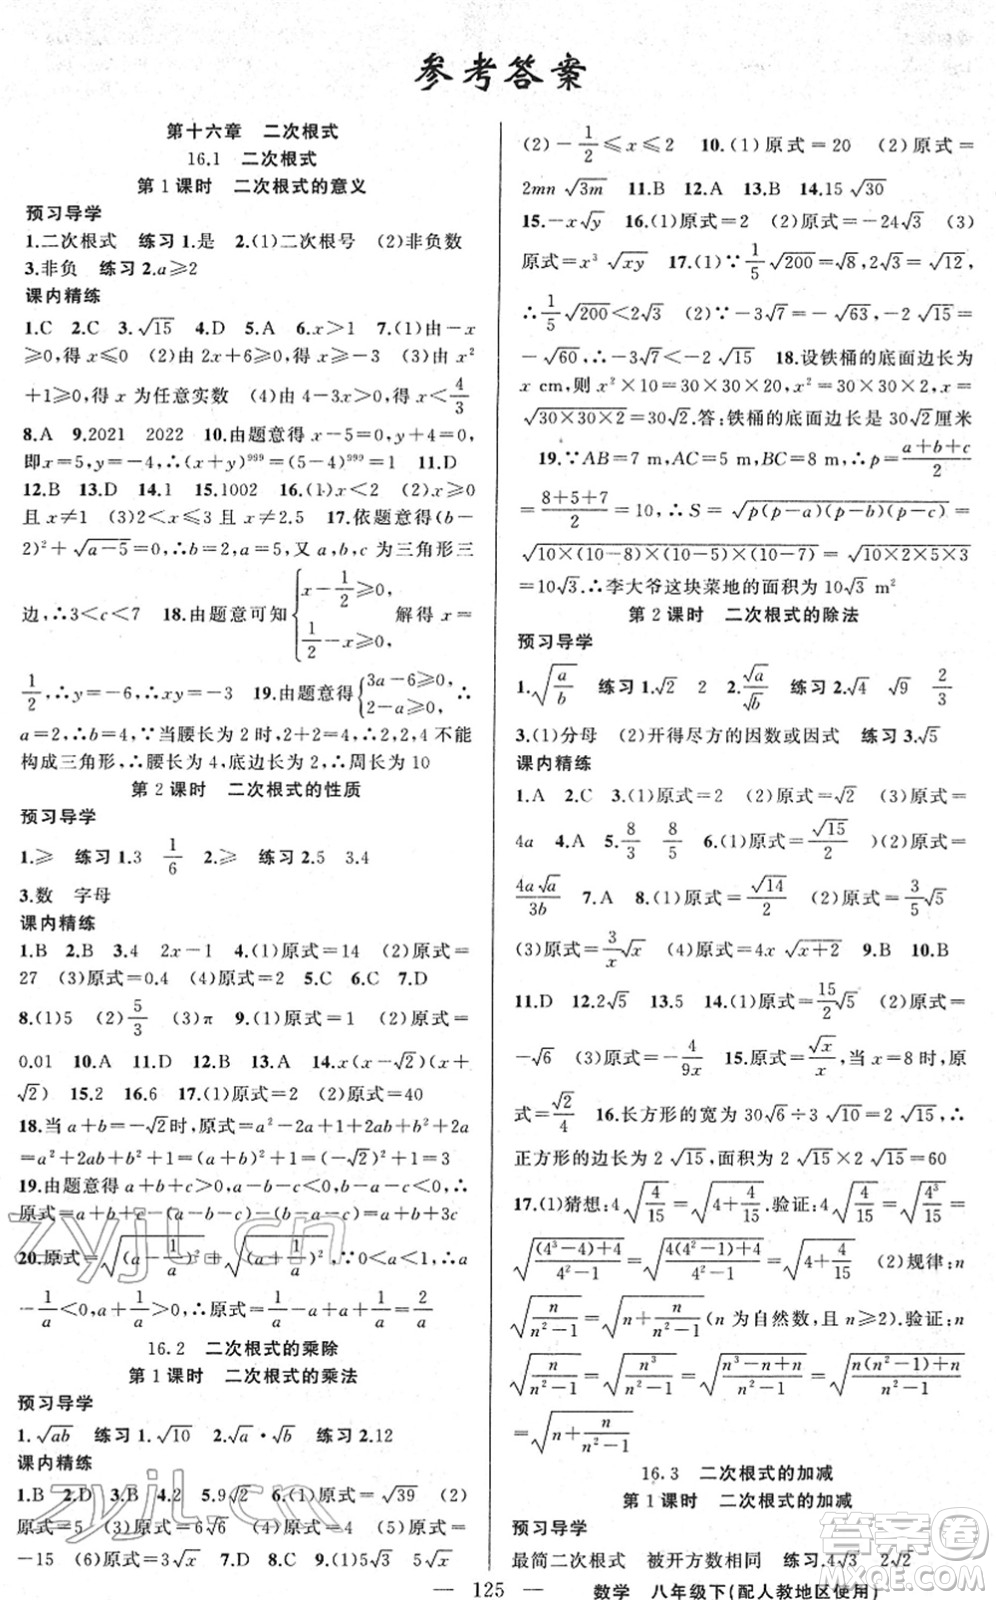 参考答案
第十六章 二次根式
16.1 二次根式
第1课时 二次根式的意义
预习导学
1.二次根式 练习1.是 2.(1)二次根号 (2)非负数
3.非负 练习2.a≥2
课内精练
1.C 2.C 3.√15 4.D 5.A 6.x>1 7.(1)由-x
≥0,得x≤0 (2)由2x+6≥0,得x≥-3 (3)由x²
+1≥0,得x为任意实数 (4)由4-3x>0,得x<4/3
8.A 9.2021 2022 10.由题意得x-5=0,y+4=0,
即x=5,y=-4,∴(x+y)⁹⁹⁹=(5-4)⁹⁹⁹=1 11.D
12.B 13.D 14.1 15.1002 16.(1)x<2 (2)x≥0
且x≠1 (3)2<x≤3且x≠2.5 17.依题意得(b-
2)²+√(a-5)=0,∴b=2,a=5,又a,b,c为三角形三
边,∴3<c<7 18.由题意可知{x-1/2≥0, 1/2-x≥0, 解得x=
1/2,∴y=-6,∴xy=-3 19.由题意得{3a-6≥0, 2-a≥0, ∴
a=2,∴b=4,∵当腰长为2时,2+2=4,不能
构成三角形,∴腰长为4,底边长为2,∴周长为10
第2课时 二次根式的性质
预习导学
1.≥ 练习1.3 1/6 2.≥ 练习2.5 3.4
3.数 字母
课内精练
1.B 2.B 3.4 2x-1 4.(1)原式=14 (2)原式=
27 (3)原式=0.4 (4)原式=2 5.C 6.C 7.D
8.(1)5 (2)5/3 (3)π 9.(1)原式=1 (2)原式=
0.01 10.A 11.D 12.B 13.A 14.x(x-√2)(x+
√2) 15.2 16.6 17.(1)原式=2 (2)原式=40
18.当a+b=-√2时,原式=a²-2a+1+2ab+b²+2a
=a²+2ab+b²+1=(a+b)²+1=(-√2)²+1=3
19.由题意得a+b+c>0,a-b-c<0,b-a-c<0,∴
原式=a+b+c-(a-b-c)-(b-a-c)=a+b+3c
20.原式=√(a-1/a)²+√(a+1/a)²,∵0<a<1,∴a
-1/a<0,a+1/a>0,∴原式=1/a-a+a+1/a=2/a
16.2 二次根式的乘除
第1课时 二次根式的乘法
预习导学
1.√ab 练习1.√10 2.√a·√b 练习2.12
课内精练
1.B 2.D 3.B 4.2 5.9√2 6.(1)原式=√39 (2)
原式=5 (3)原式=6√6 (4)原式=4 (5)原式=
-15 (6)原式=3√x 7.D 8.B 9.B 10.5√2 5√x
(2)-1/2≤x≤2 10.(1)原式=20 (2)原式=
2mn√3m 11.B 12.A 13.B 14.15√30
15.-x√y 16.(1)原式=2 (2)原式=-24√3 (3)
原式=x³√xy 17.(1)∵1/5√200=√8,2√3=√12,
∴1/5√200<2√3 (2)∵-3√7=-√63,-2√15=
-√60,∴-3√7<-2√15 18.设铁桶的底面边长为
x cm,则x²×10=30×30×20,x²=30×30×2,x=
√30×30×2=30√2.答:铁桶的底面边长是30√2厘米
19.∵AB=7 m,AC=5 m,BC=8 m,∴p=(a+b+c)/2
=(8+5+7)/2=10,∴S=√p(p-a)(p-b)(p-c)=
√10×(10-8)×(10-5)×(10-7)=√10×2×5×3
=10√3.∴李大爷这块菜地的面积为10√3 m²
第2课时 二次根式的除法
预习导学
1.√(a/b) 练习1.√2 2 2.√a/√b 练习2.√4 √9 2/3
3.(1)分母 (2)开得尽方的因数或因式 练习3.√5
课内精练
1.A 2.C 3.(1)原式=2 (2)原式=√2 (3)原式=
4a 4.A 5.8/3 8/5 6.(1)原式=√15/2 )(2)原式=
4a√a/3b 7.A 8.(1)原式=√14/2 (2)原式=3/5√5
(3)原式=3/x√x (4)原式=4x√(x+2) 9.B 10.B
11.D 12.2√5 13.5 14.(1)原式=15/2√5 (2)原式=
-√6 (3)原式=-4/9x 15.原式=√x/x,当x=8时,原
式=√2/4 16.长方形的宽为30√6÷3√10=2√15,∴
正方形的边长为2√15×2√15=60
17.(1)猜想:4√(4/15)=√(4+4/15).验证:4√(4/15)=√(4³/15)=
√(((4³-4)+4)/(4²-1))=√((4(4²-1)+4)/(4²-1))=√(4+4/15) (2)规律:n
√(n/(n²-1))=√(n+n/(n²-1))(n为自然数,n≥2).验证:n
√(n/(n²-1))=√(n³/(n²-1))=√((n³-n+n)/(n²-1))=√((n(n²-1)+n)/(n²-1))
=√(n+n/(n²-1))
16.3 二次根式的加减
第1课时 二次根式的加减
预习导学
最简二次根式 被开方数相同 练习.4√3 2√2
— 125 — 数学 八年级下(配人教地区使用)
zyjl.cn
zyjl.cn
答案圈
MXQE.COM